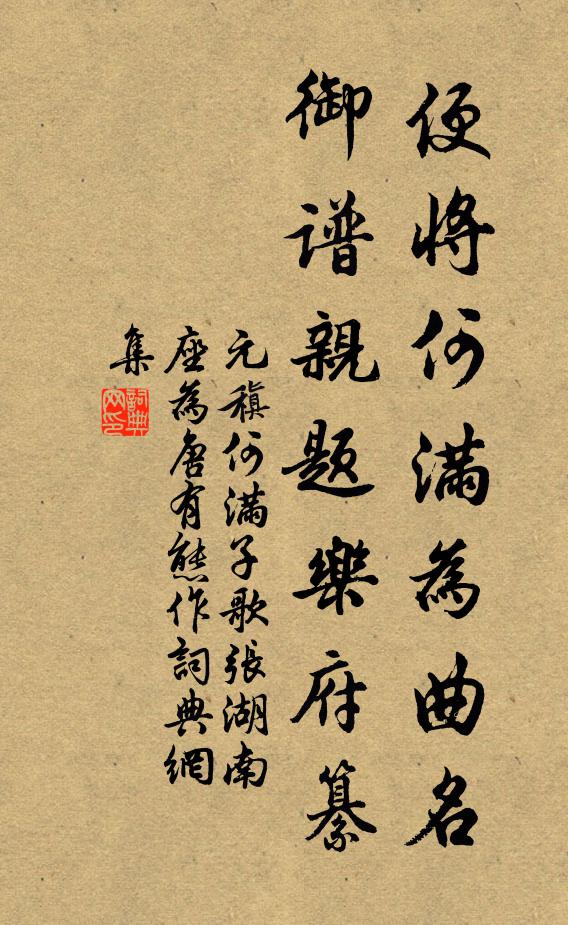 便将何满為曲名
御谱親题樂府纂
元稹何满子歌張湖南
座為唐有熊作詞典網
集
詞典網印